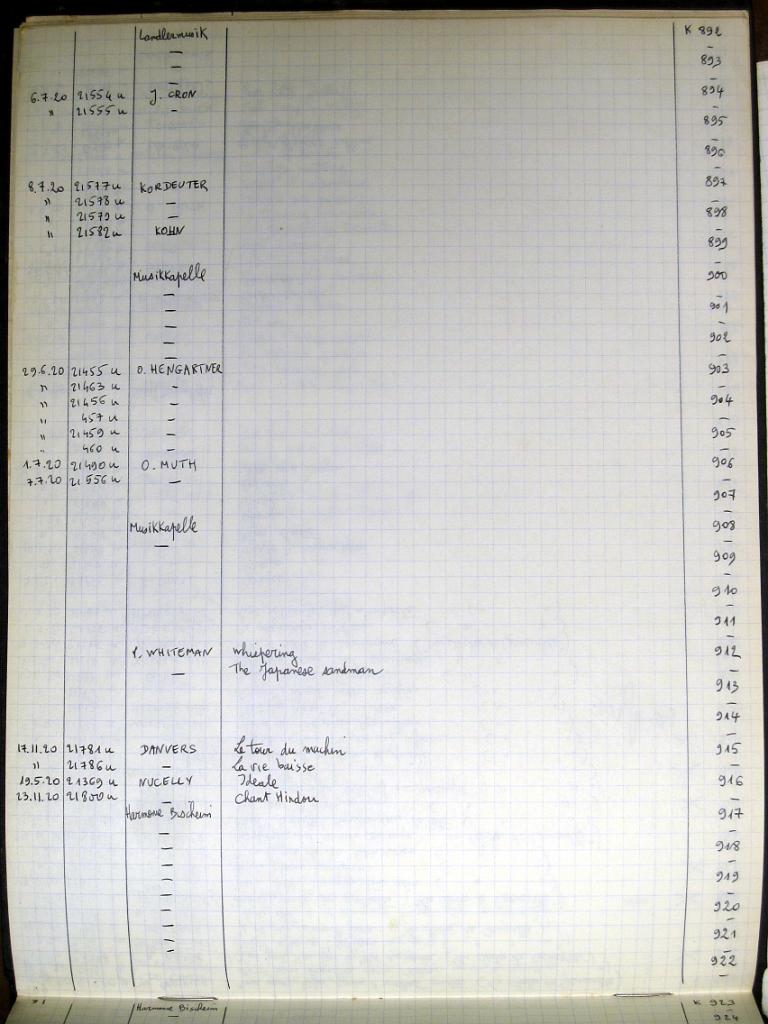 Landlermusik K 892
— —
— 893
— —
6.7.20 21554 u J. CRON 894
" 21555 u - —
895
—
896
—
8.7.20 21577 u KORDEUTER 897
" 21578 u — —
" 21579 u — 898
" 21582 u KOHN —
899
—
Musikkapelle 900
— —
— 901
— —
— 902
— —
29.6.20 21455 u O. HENGARTNER 903
" 21463 u - —
" 21456 u - 904
" 457 u - —
" 21459 u - 905
" 460 u - —
1.7.20 21490 u O. MUTH 906
7.7.20 21556 u — —
907
—
Musikkapelle 908
— —
909
—
910
—
911
—
P. WHITEMAN whispering 912
— The Japanese sandman —
913
—
914
—
17.11.20 21781 u DANVERS Le tour du machin 915
" 21786 u - La vie baisse —
19.5.20 21369 u NUCELLY Ideale 916
23.11.20 21800 u — Chant Hindou —
Harmonie Bischeim 917
— —
— 918
— —
— 919
— —
— 920
— —
— 921
— —
922
—
Harmonie Bischeim K 923
— 924